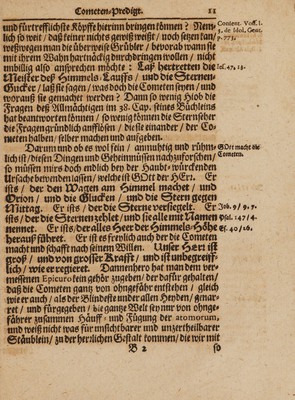 Cometen-Predigt. 11
und fürtrefflichste Köpffe hierinn bringen können? Nem-
lich so weit / daß keiner nichts gewiß weißst / noch setzen kan/
weßwegen man die überweise Grübler / bevorab wann sie
mit ihrem Wahn hartnäckig durchdringen wollen / nicht
unbillig also ansprechen möchte: Laß herzutretten die
Meister deß Himmels-Lauffs / und die Sternen-
Gucker/ laß sie sagen / was doch die Cometen seyen / und
worauß sie gemachet werden? Dann so wenig Hiob die
Fragen deß Allmächtigen im 38. Cap. seines Büchleins
hat beantworten können / so wenig können die Sternseher
die Fragen gründlich aufflösen / die sie einander / der Co-
meten halben / selber machen und auffgeben.
Darum und ob es wol sein / anmuhtig und rühm-
lich ist/ diesen Dingen und Geheimnüssen nachzuforschen/
so müssen wirs doch endlich bey der Haubt-würckenden
Ursache bewenden lassen/ welche ist GOtt der HErr. Er
ists / der den Wagen am Himmel machet / und
Orion / und die Glucken / und die Stern gegen
Mittag. Er ists / der die Sterne versiegelt. Er
ists / der die Sternen zehlet / und sie alle mit Namen
nennet. Er ists/ der alles Heer der Himmels-Höhe
herauß führet. Er ist es freylich auch der die Cometen
macht und schafft nach seinen Willen. Unser Herr ist
groß / und von grosser Krafft / und ist unbegreiff-
lich / wie er regieret. Dannenhero hat man dem ver-
messenen Epicuro kein gehör zugeben / der dafür gehalten/
daß die Cometen gantz von ohngefähr entstehen / gleich
wie er auch / als der Blindeste unter allen Heyden / genar-
ret / und fürgegeben / die gantze Welt sey nur von ohnge-
fährer zusammen Häuff- und Fügung der atomorum,
und weiß nicht was für unsichtbarer und unzertheilbarer
Stäublein / zu der herrlichen Gestalt kommen / die wir mit
B 2 so
Conient. Voss. l.
3. de Idol. Gent.
p. 773.
Es. 47, 13.
GOtt macht die
Cometen.
Job. 9 / 9. 7.
Psal. 147 / 4.
Es. 40 / 26.